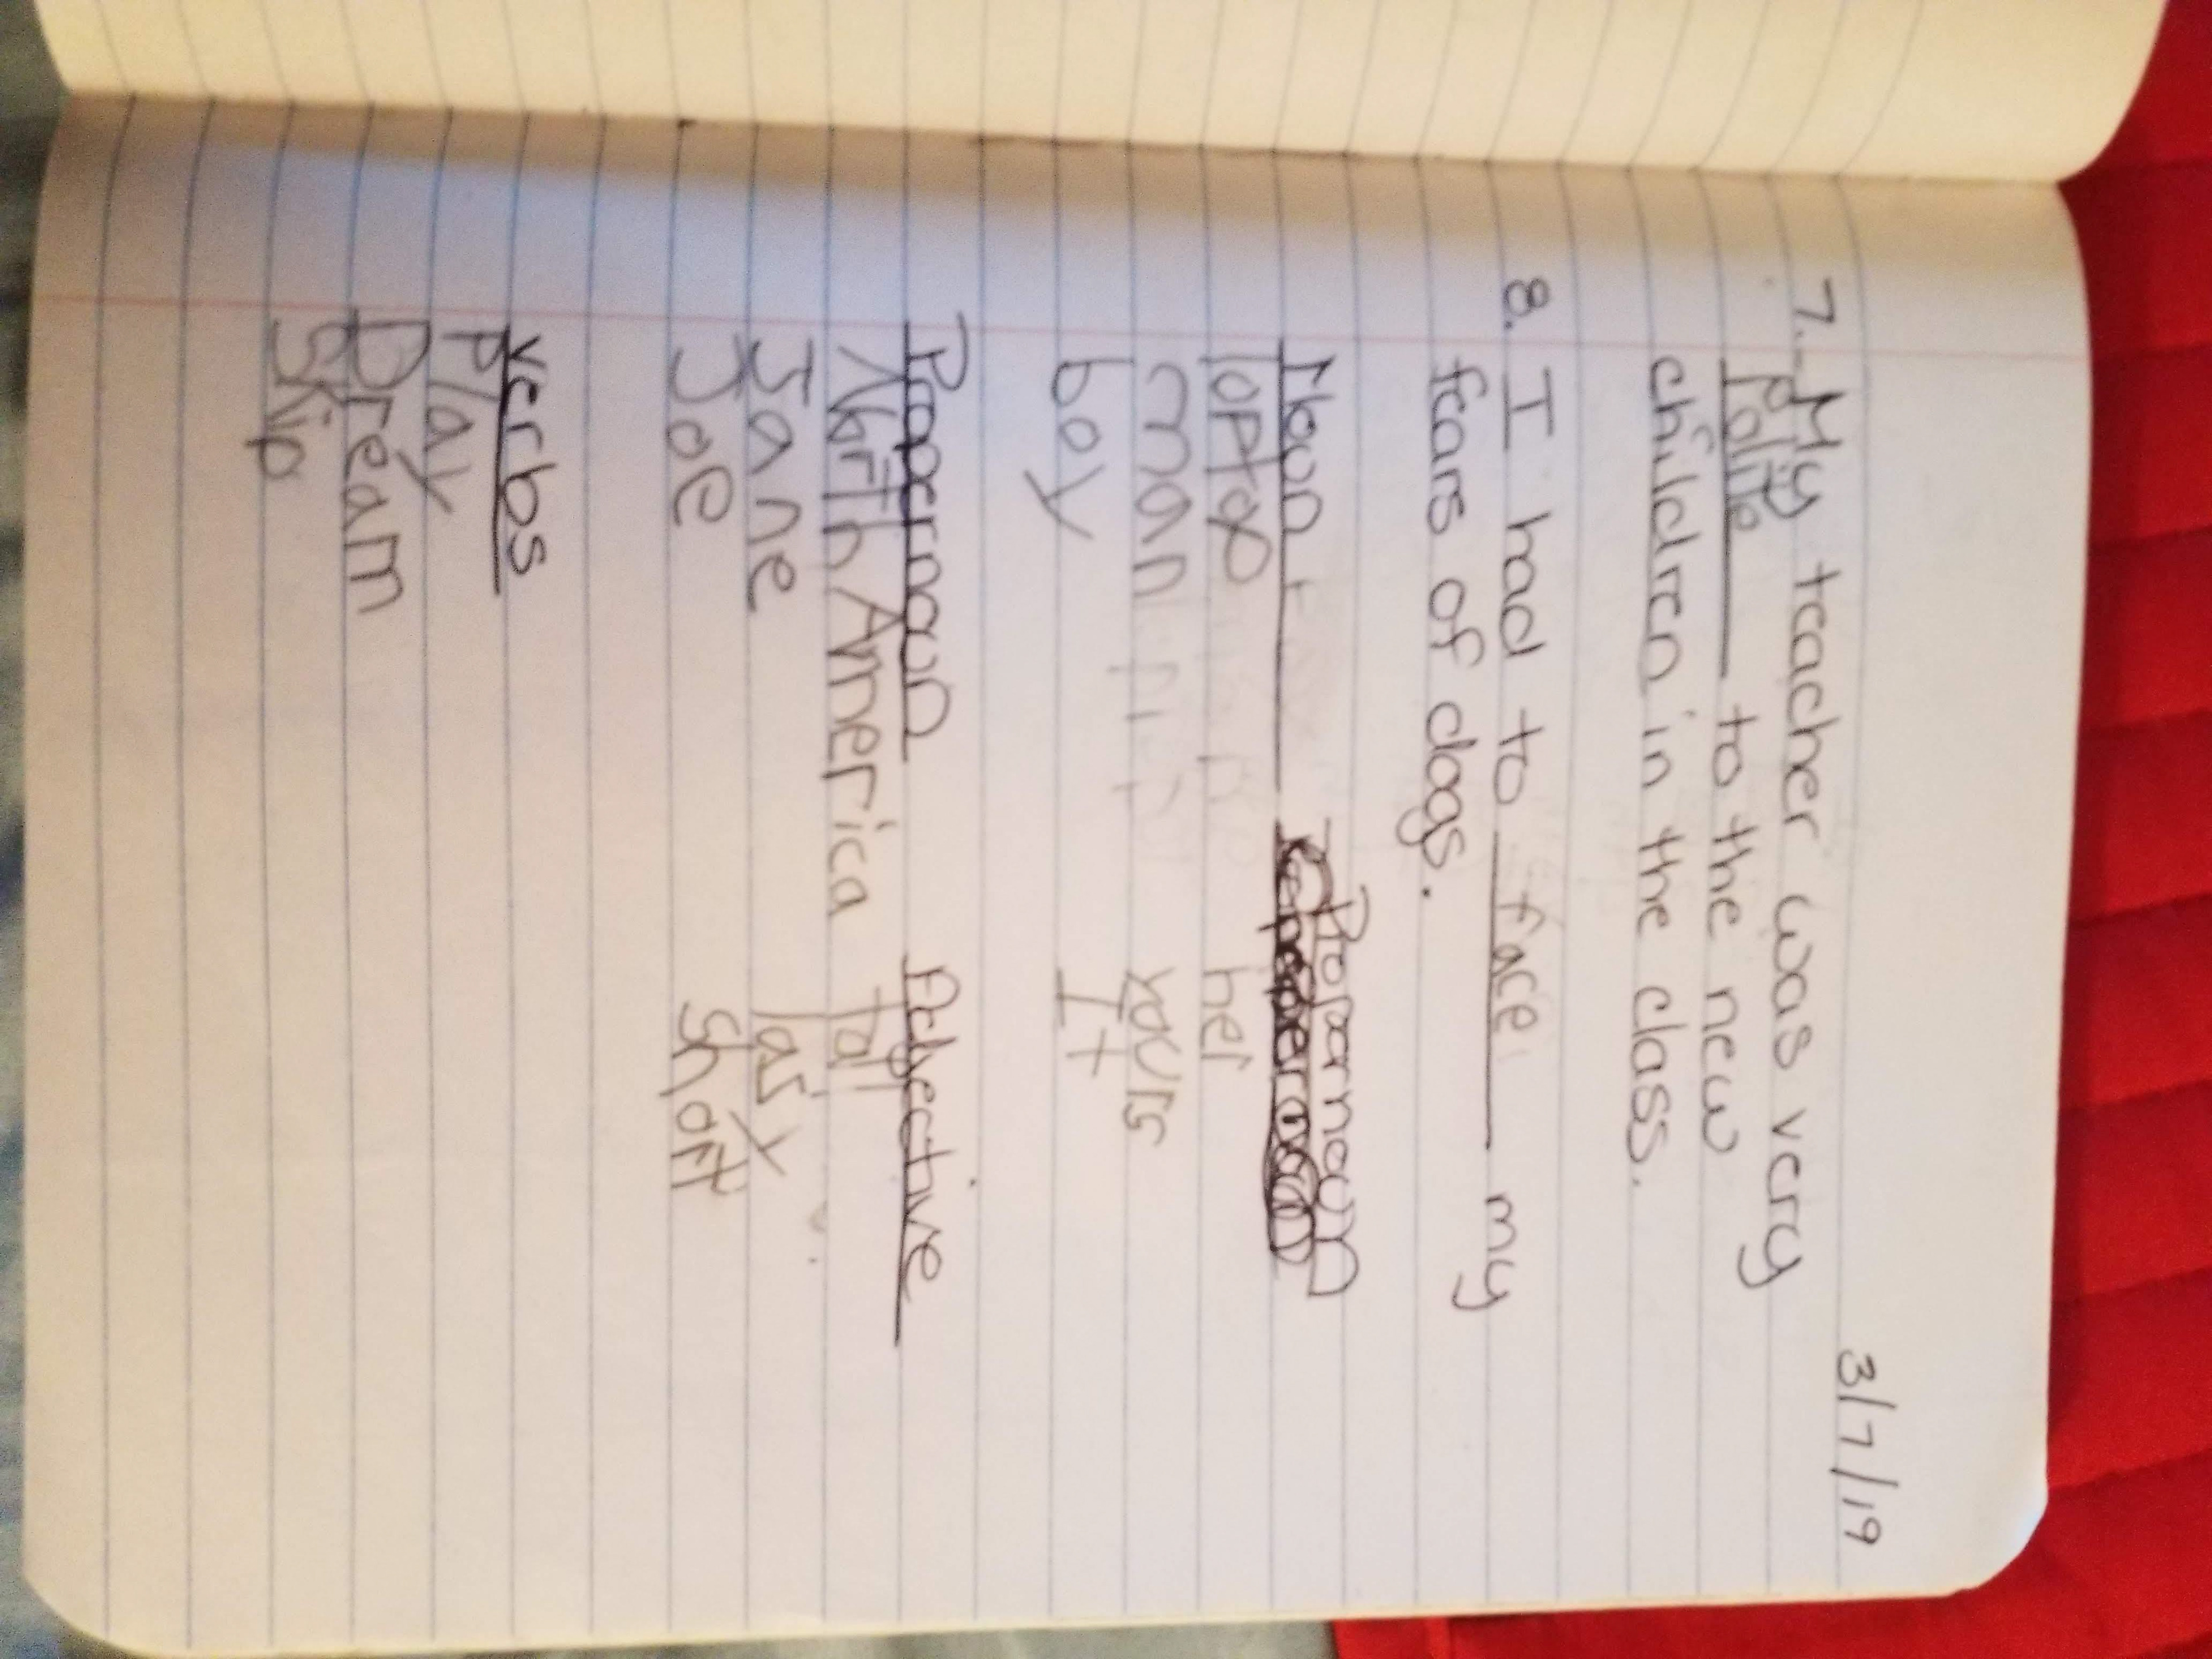 3/7/19
7. My teacher was very
Polite to the new
children in the class.
8. I had to face my
fears of dogs.
Noun Propernoun
laptop her
man yours
boy It
Propernoun Adjective
North America Tall
Jane lasy
Joe Short
verbs
Play
Dream
Skip